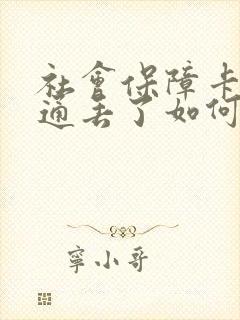 社會保障卡
通丢了如何
寧小哥